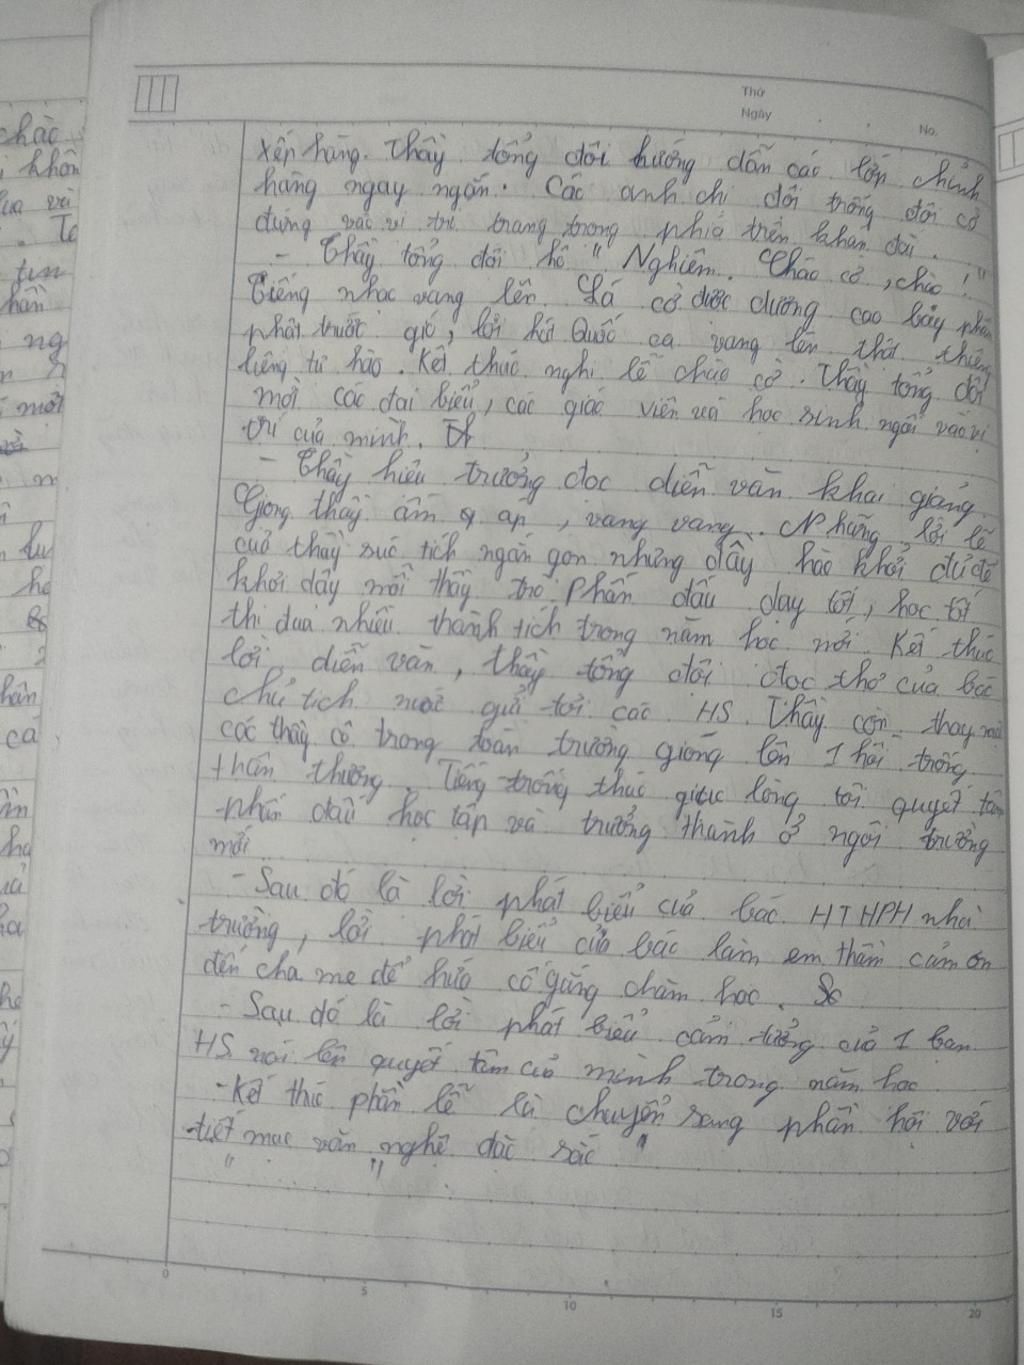 Thứ
Ngày
No.
xếp hàng. Thầy tổng đội hướng dẫn các lớp chỉnh
hàng ngay ngắn. Các anh chị đội trống đội cờ
đứng vào vị trí trang trọng phía trên khán đài.
- Thầy tổng đội hô " Nghiêm. Chào cờ, chào !"
Tiếng nhạc vang lên. Lá cờ được dương cao bay phấp
phới trước gió, lời hát Quốc ca vang lên thật thiêng
liêng tự hào. Kết thúc nghi lễ chào cờ. Thầy tổng đội
mời các đại biểu, các giáo viên và học sinh ngồi vào vị
trí của mình.
- Thầy hiệu trưởng đọc diễn văn khai giảng.
Giọng thầy ấm áp, vang vang. Những lời lẽ
của thầy súc tích ngắn gọn nhưng đầy hào khởi đủ để
khơi dậy mỗi thầy trò phấn đấu dạy tốt, học tốt
thi đua nhiều thành tích trong năm học mới. Kết thúc
lời diễn văn, thầy tổng đội đọc thơ của bác
chủ tịch nước gửi tới các HS. Thầy còn thay mặt
các thầy cô trong toàn trường gióng lên 1 hồi trống
thân thương. Tiếng trống thúc giục lòng tôi quyết tâm
phấn đấu học tập và trưởng thành ở ngôi trường
mới
- Sau đó là lời phát biểu của bác HTHPH nhà
trường, lời phát biểu của bác làm em thầm cảm ơn
đến cha mẹ để hứa cố gắng chăm học.
- Sau đó là lời phát biểu cảm tưởng của 1 bạn
HS nói lên quyết tâm của mình trong năm học.
- Kết thúc phần lễ là chuyển sang phần hội với
tiết mục văn nghệ đặc sắc
0 5 10 15 20